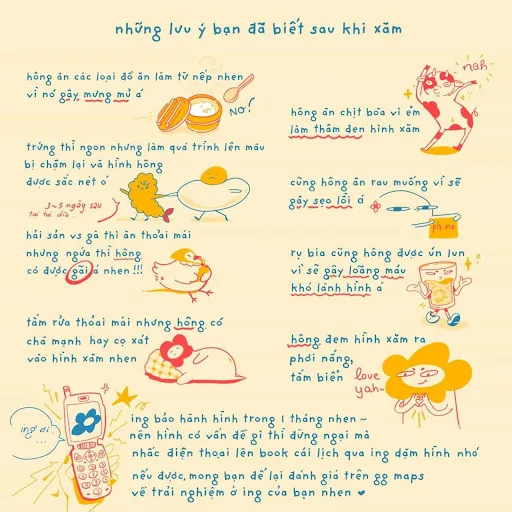 những lưu ý bạn đã biết sau khi xăm
hông ăn các loại đồ ăn làm từ nếp nhen
vì nó gây mưng mủ á
NO!
trứng thì ngon nhưng làm quá trình lên màu
bị chậm lại và hình hông
được sắc nét á
3~5 ngày sau
hải sản vs gà thì ăn thoải mái
nhưng ngứa thì hông
có được gãi á nhen!!!
tắm rửa thoải mái nhưng hông có
chà mạnh hay cọ xát
vào hình xăm nhen
nah~
hông ăn chịt bòa vì ẻm
làm thâm đen hình xăm
cũng hông ăn rau muống vì sẽ
gây sẹo lồi á
rụ bia cũng hông được ún lun
vì sẽ gây loãng máu
khó lành hình á
hông đem hình xăm ra
phơi nắng,
tắm biển
love
yah~
ing ơi
...
ing bảo hành hình trong 1 tháng nhen ~
nên hình có vấn đề gì thì đừng ngại mà
nhấc điện thoại lên book cái lịch qua ing dặm hình nhó
nếu được, mong bạn để lại đánh giá trên gg maps
về trải nghiệm ở ing của bạn nhen